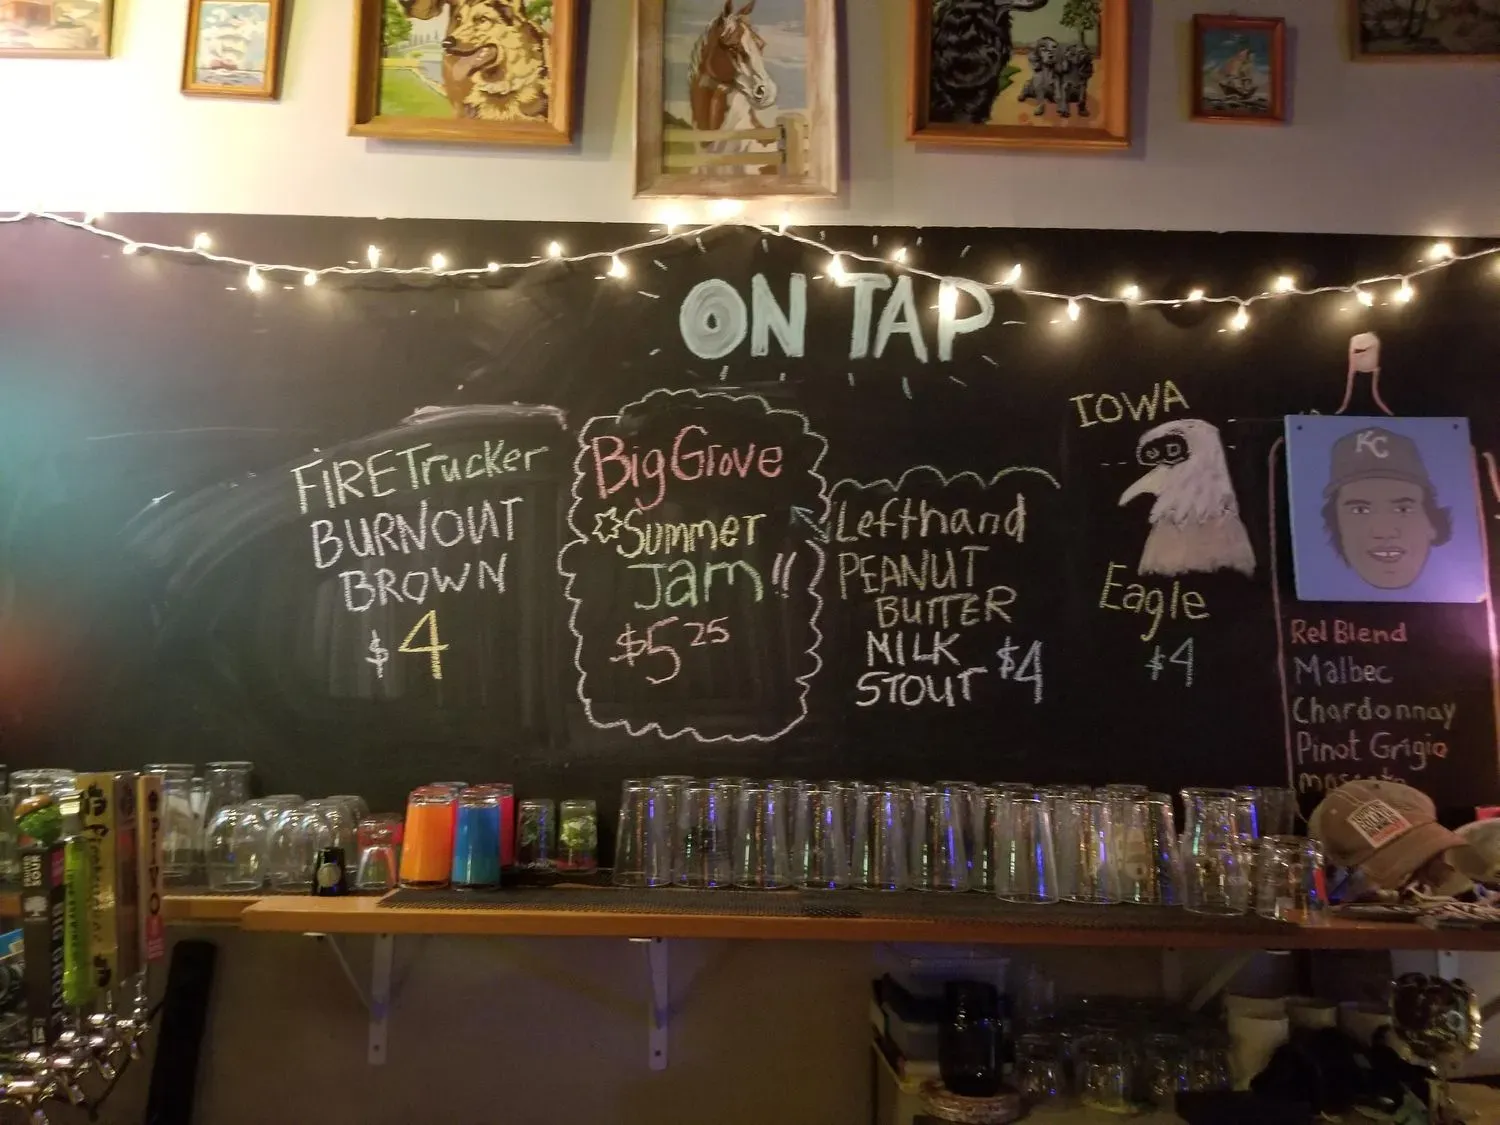 ON TAP
FIRETrucker
BURNOUT
BROWN
$4
Big Grove
Summer
Jam!!
$5 25
Lefthand
PEANUT
BUTTER
MILK
STOUT $4
IOWA
Eagle
$4
KC
Rel Blend
Malbec
Chardonnay
Pinot Grigio